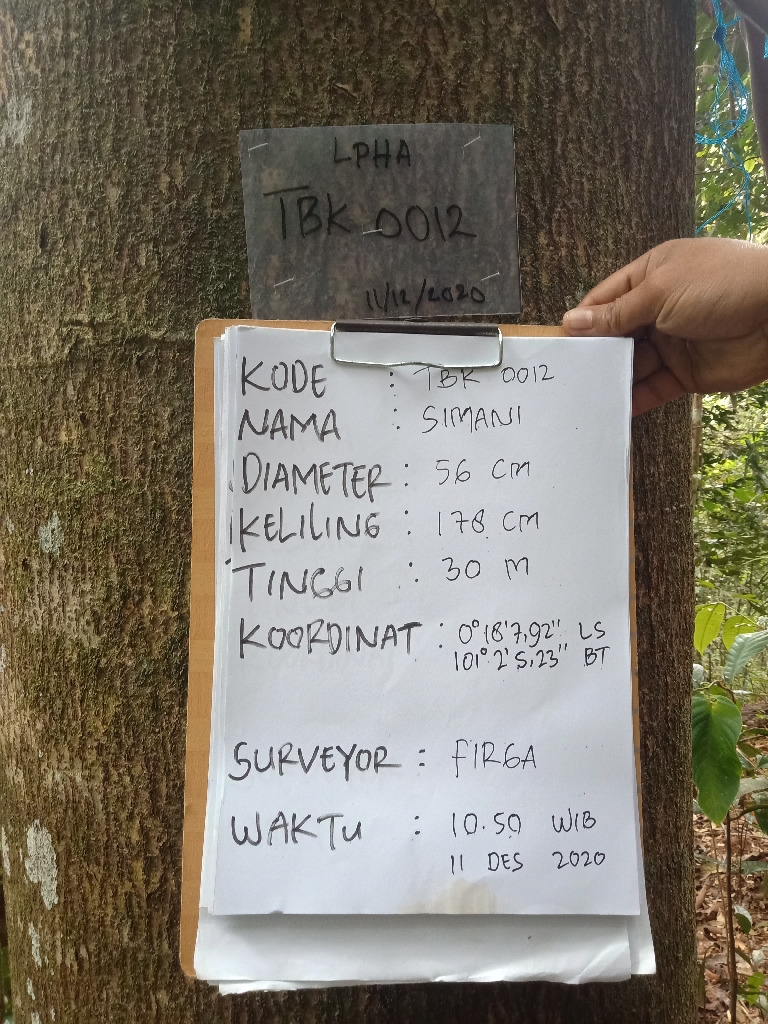 LPHA
TBK 0012
11/12/2020
KODE : TBK 0012
NAMA : SIMANI
DIAMETER : 56 CM
KELILING : 178 CM
TINGGI : 30 M
KOORDINAT : 0° 18' 7,92" LS
101° 2' 5,23" BT
SURVEYOR : FIRGA
WAKTU : 10.50 WIB
11 DES 2020